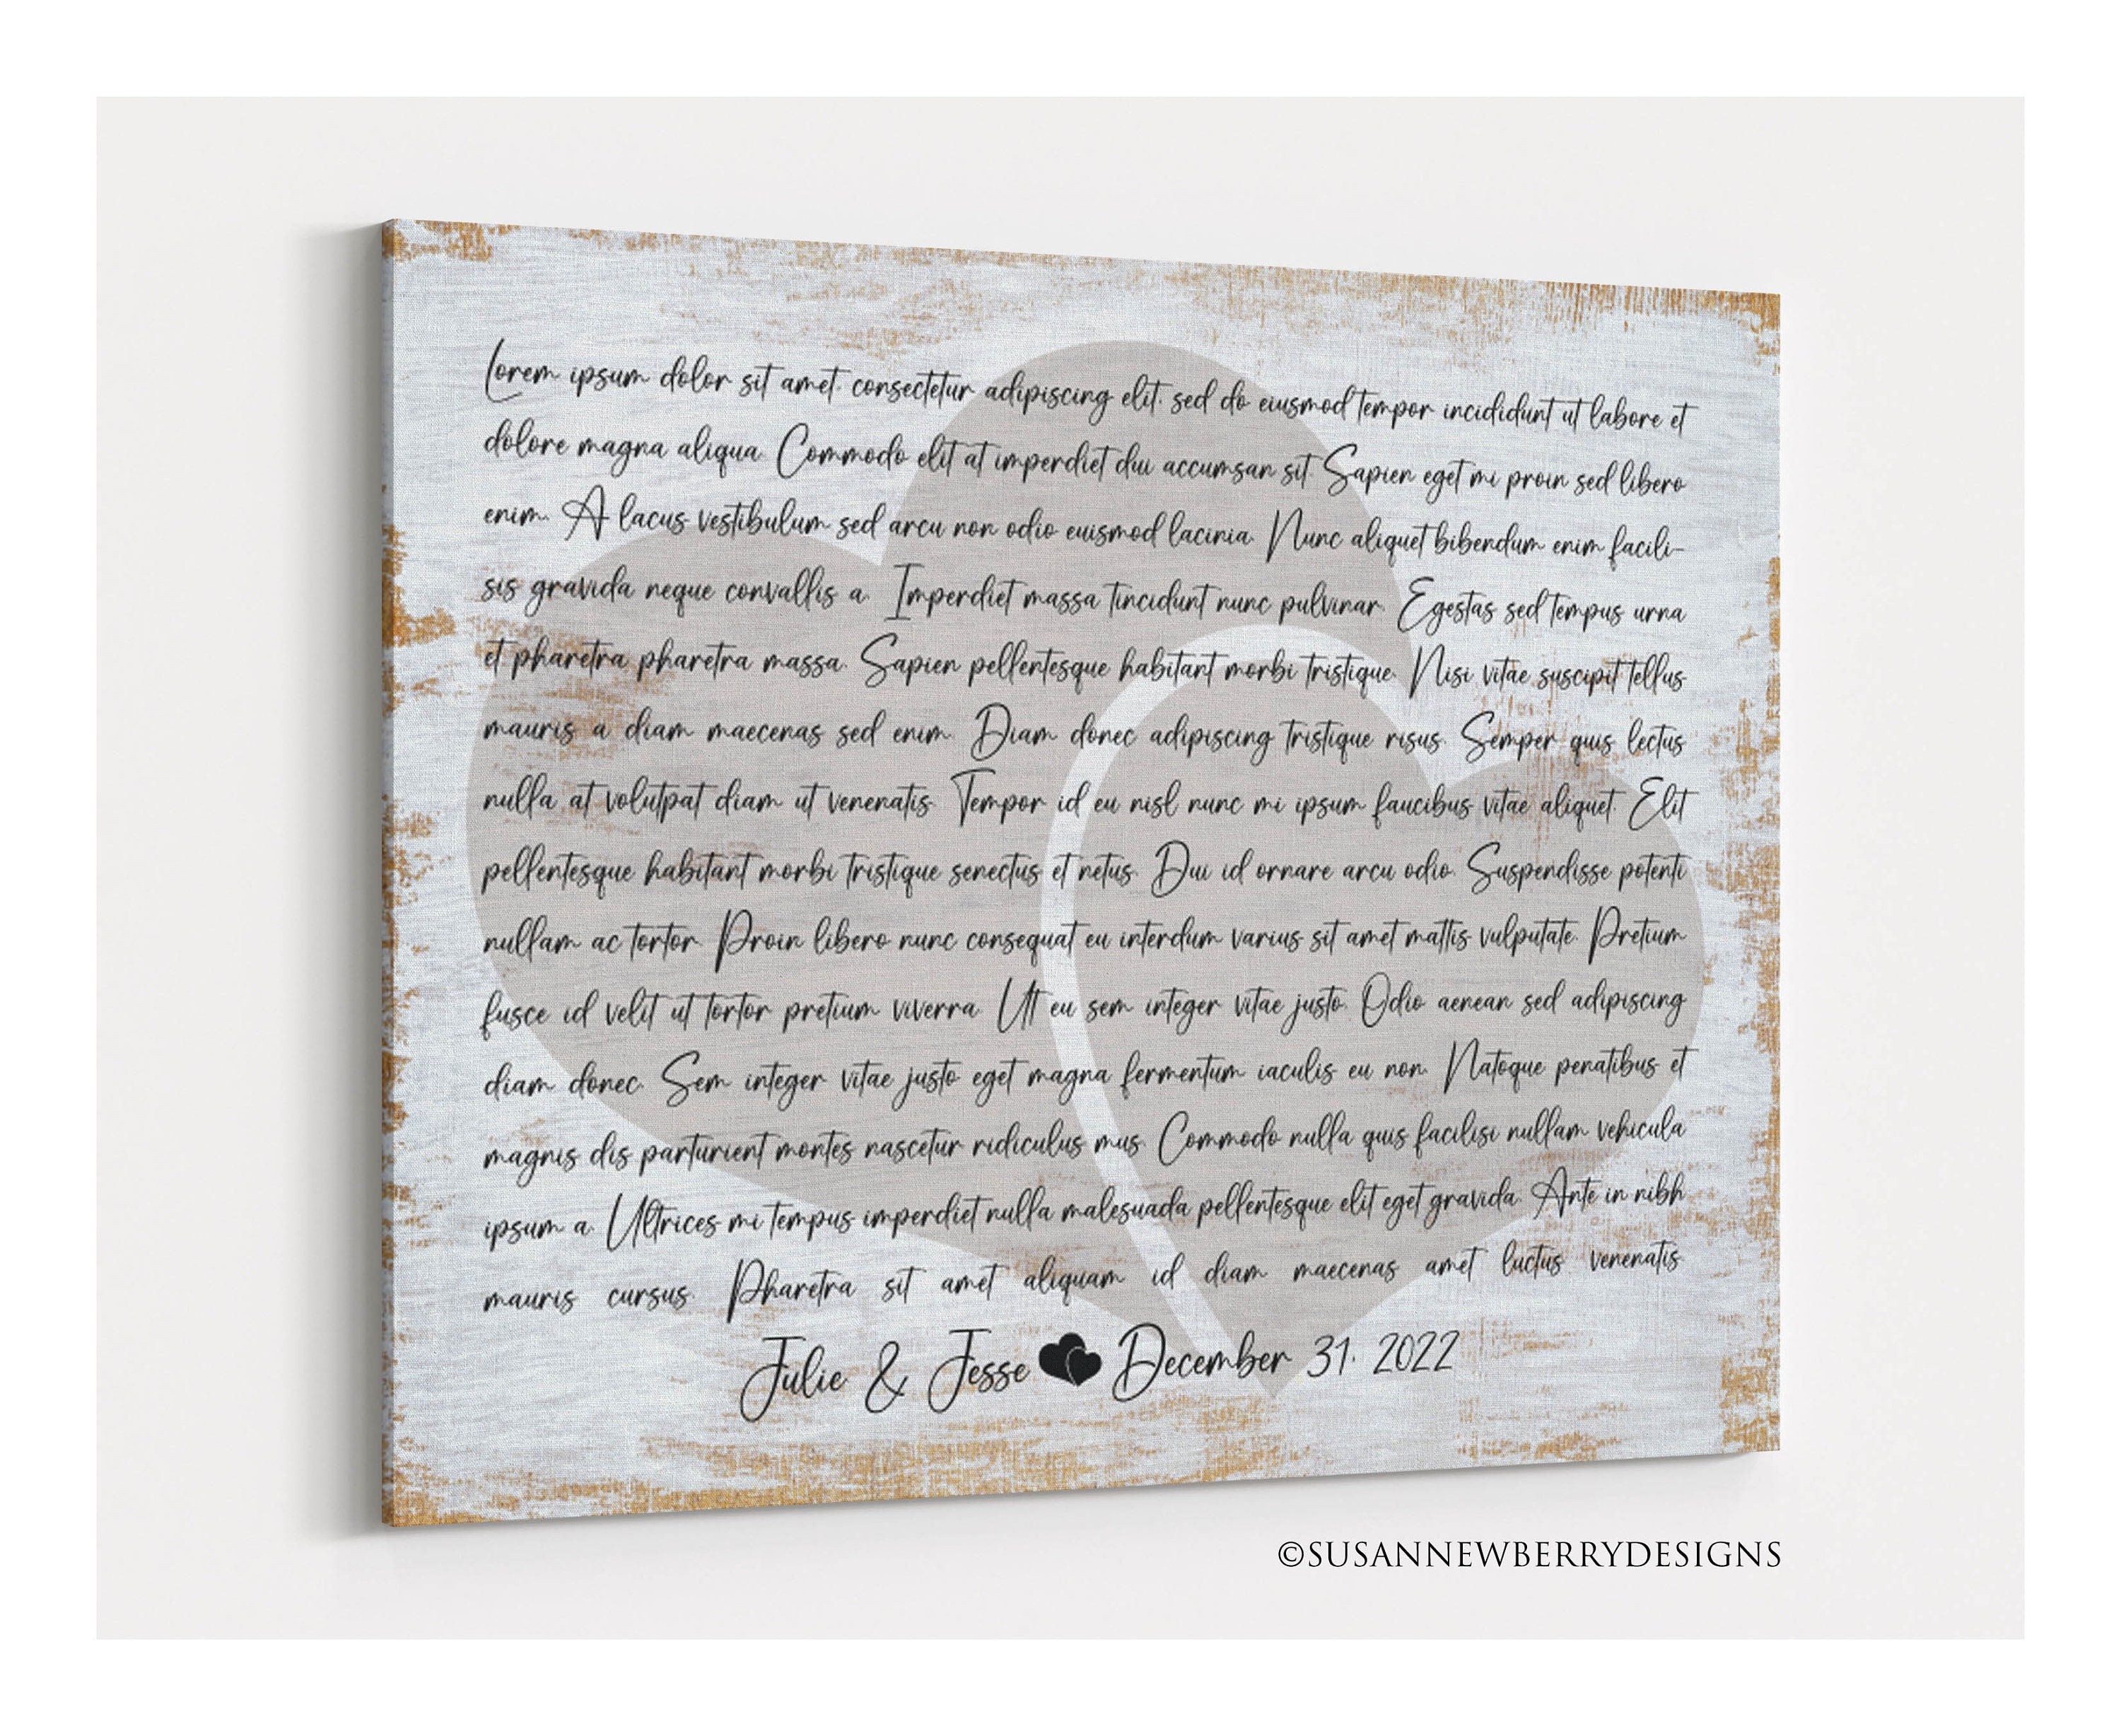 Lorem ipsum dolor sit amet, consectetur adipiscing elit, sed do eiusmod tempor incididunt ut labore et
dolore magna aliqua. Commodo elit at imperdiet dui accumsan sit. Sapien eget mi proin sed libero
enim. A lacus vestibulum sed arcu non odio euismod lacinia. Nunc aliquet bibendum enim facili-
sis gravida neque convallis a. Imperdiet massa tincidunt nunc pulvinar. Egestas sed tempus urna
et pharetra pharetra massa. Sapien pellentesque habitant morbi tristique. Nisi vitae suscipit tellus
mauris a diam maecenas sed enim. Diam donec adipiscing tristique risus. Semper quis lectus
nulla at volutpat diam ut venenatis. Tempor id eu nisl nunc mi ipsum faucibus vitae aliquet. Elit
pellentesque habitant morbi tristique senectus et netus. Dui id ornare arcu odio. Suspendisse potenti
nullam ac tortor. Proin libero nunc consequat eu interdum varius sit amet mattis vulputate. Pretium
fusce id velit ut tortor pretium viverra. Ut eu sem integer vitae justo. Odio aenean sed adipiscing
diam donec. Sem integer vitae justo eget magna fermentum iaculis eu non. Natoque penatibus et
magnis dis parturient montes nascetur ridiculus mus. Commodo nulla quis facilisi nullam vehicula
ipsum a. Ultrices mi tempus imperdiet nulla malesuada pellentesque elit eget gravida. Ante in nibh
mauris cursus. Pharetra sit amet aliquam id diam maecenas amet luctus venenatis.
Julie & Jesse December 31, 2022
©SUSANNEWBERRYDESIGNS